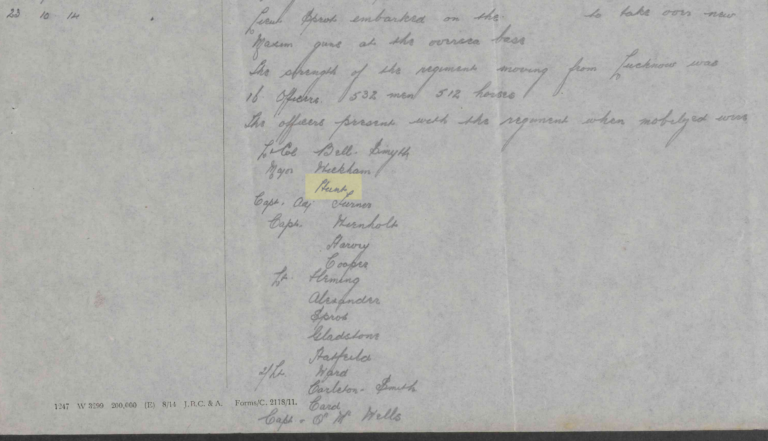 23 10 14 Lieut Sprot embarked on the to take over new
Maxim guns at the oversea base
The strength of the regiment moving from Lucknow was
16 Officers. 532 men 512 horses
The officers present with the regiment when mobilized were
Lt Col Bell-Smyth
Major Wickham
Hunt
Capt. Adj Turner
Capt. Wernholt
Harvey
Cooper
Lt. Fleming
Alexander
Sprot
Gladstone
Hatfield
2/Lt Ward
Carleton-Smith
Card
Capt. S W Wells
1247 W 3299 200,000 (E) 8/14 J.B.C. & A. Forms/C. 2118/11.